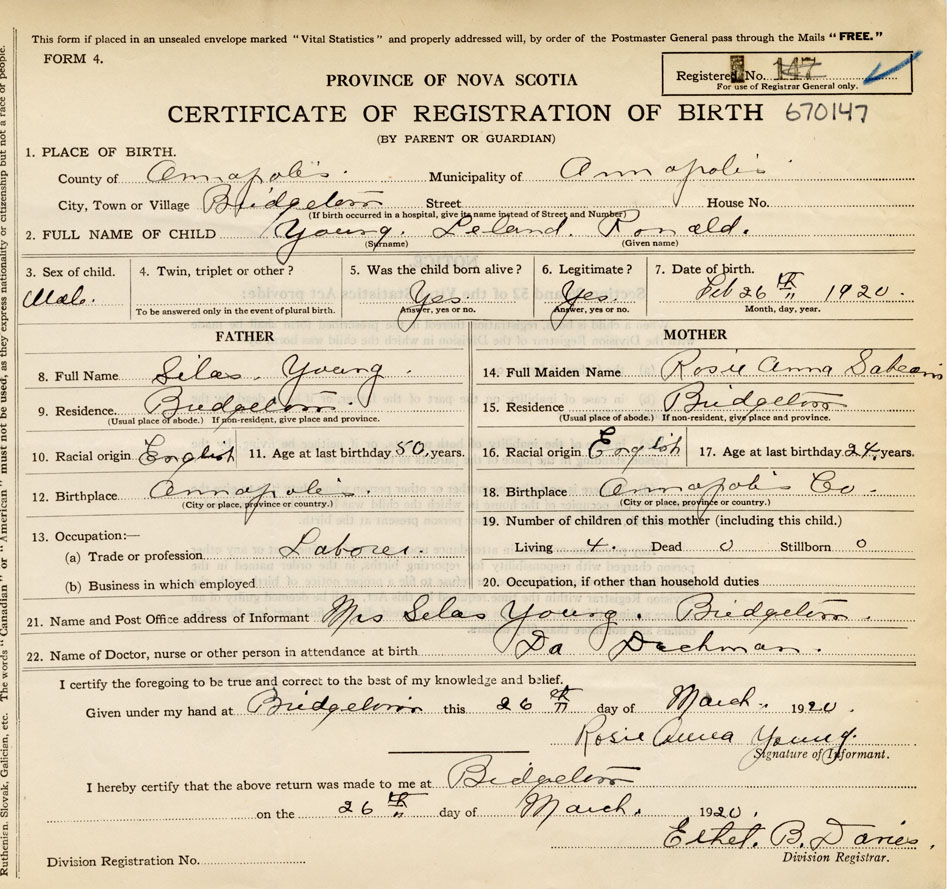 This form if placed in an unsealed envelope marked "Vital Statistics" and properly addressed will, by order of the Postmaster General pass through the Mails "FREE."
FORM 4.
Registered No. 147
For use of Registrar General only.
PROVINCE OF NOVA SCOTIA
CERTIFICATE OF REGISTRATION OF BIRTH 670147
(BY PARENT OR GUARDIAN)
1. PLACE OF BIRTH.
County of Annapolis. Municipality of Annapolis
City, Town or Village Bridgetown Street House No.
(If birth occurred in a hospital, give its name instead of Street and Number)
2. FULL NAME OF CHILD Young. Leland. Ronald.
(Surname) (Given name)
3. Sex of child. 4. Twin, triplet or other? 5. Was the child born alive? 6. Legitimate? 7. Date of birth.
Male. Yes. Yes. Feb 26th 1920.
To be answered only in the event of plural birth. Answer, yes or no. Answer, yes or no. Month, day, year.
FATHER MOTHER
8. Full Name Silas. Young. 14. Full Maiden Name Rosie Anna
9. Residence Bridgetown. 15. Residence Bridgetown
(Usual place of abode.) If non-resident, give place and province. (Usual place of abode.) If non-resident, give place and province.
10. Racial origin English 11. Age at last birthday 50, years. 16. Racial origin English 17. Age at last birthday 24, years.
12. Birthplace Annapolis. 18. Birthplace Annapolis Co.
(City or place, province or country.) (City or place, province or country.)
13. Occupation:— 19. Number of children of this mother (including this child.)
(a) Trade or profession Laborer. Living 4. Dead 0 Stillborn 0
(b) Business in which employed 20. Occupation, if other than household duties
21. Name and Post Office address of Informant Mrs Silas Young. Bridgetown.
22. Name of Doctor, nurse or other person in attendance at birth Dechman.
I certify the foregoing to be true and correct to the best of my knowledge and belief.
Given under my hand at Bridgetown this 26th day of March. 1920.
Rosie Anna Young.
Signature of Informant.
I hereby certify that the above return was made to me at Bridgetown
on the 26th day of March. 1920.
Ethel. B. Davies.
Division Registration No. Division Registrar.
Ruthenian, Slovak, Galician, etc. The words "Canadian" or "American" must not be used, as they express nationality or citizenship but not a race or people.